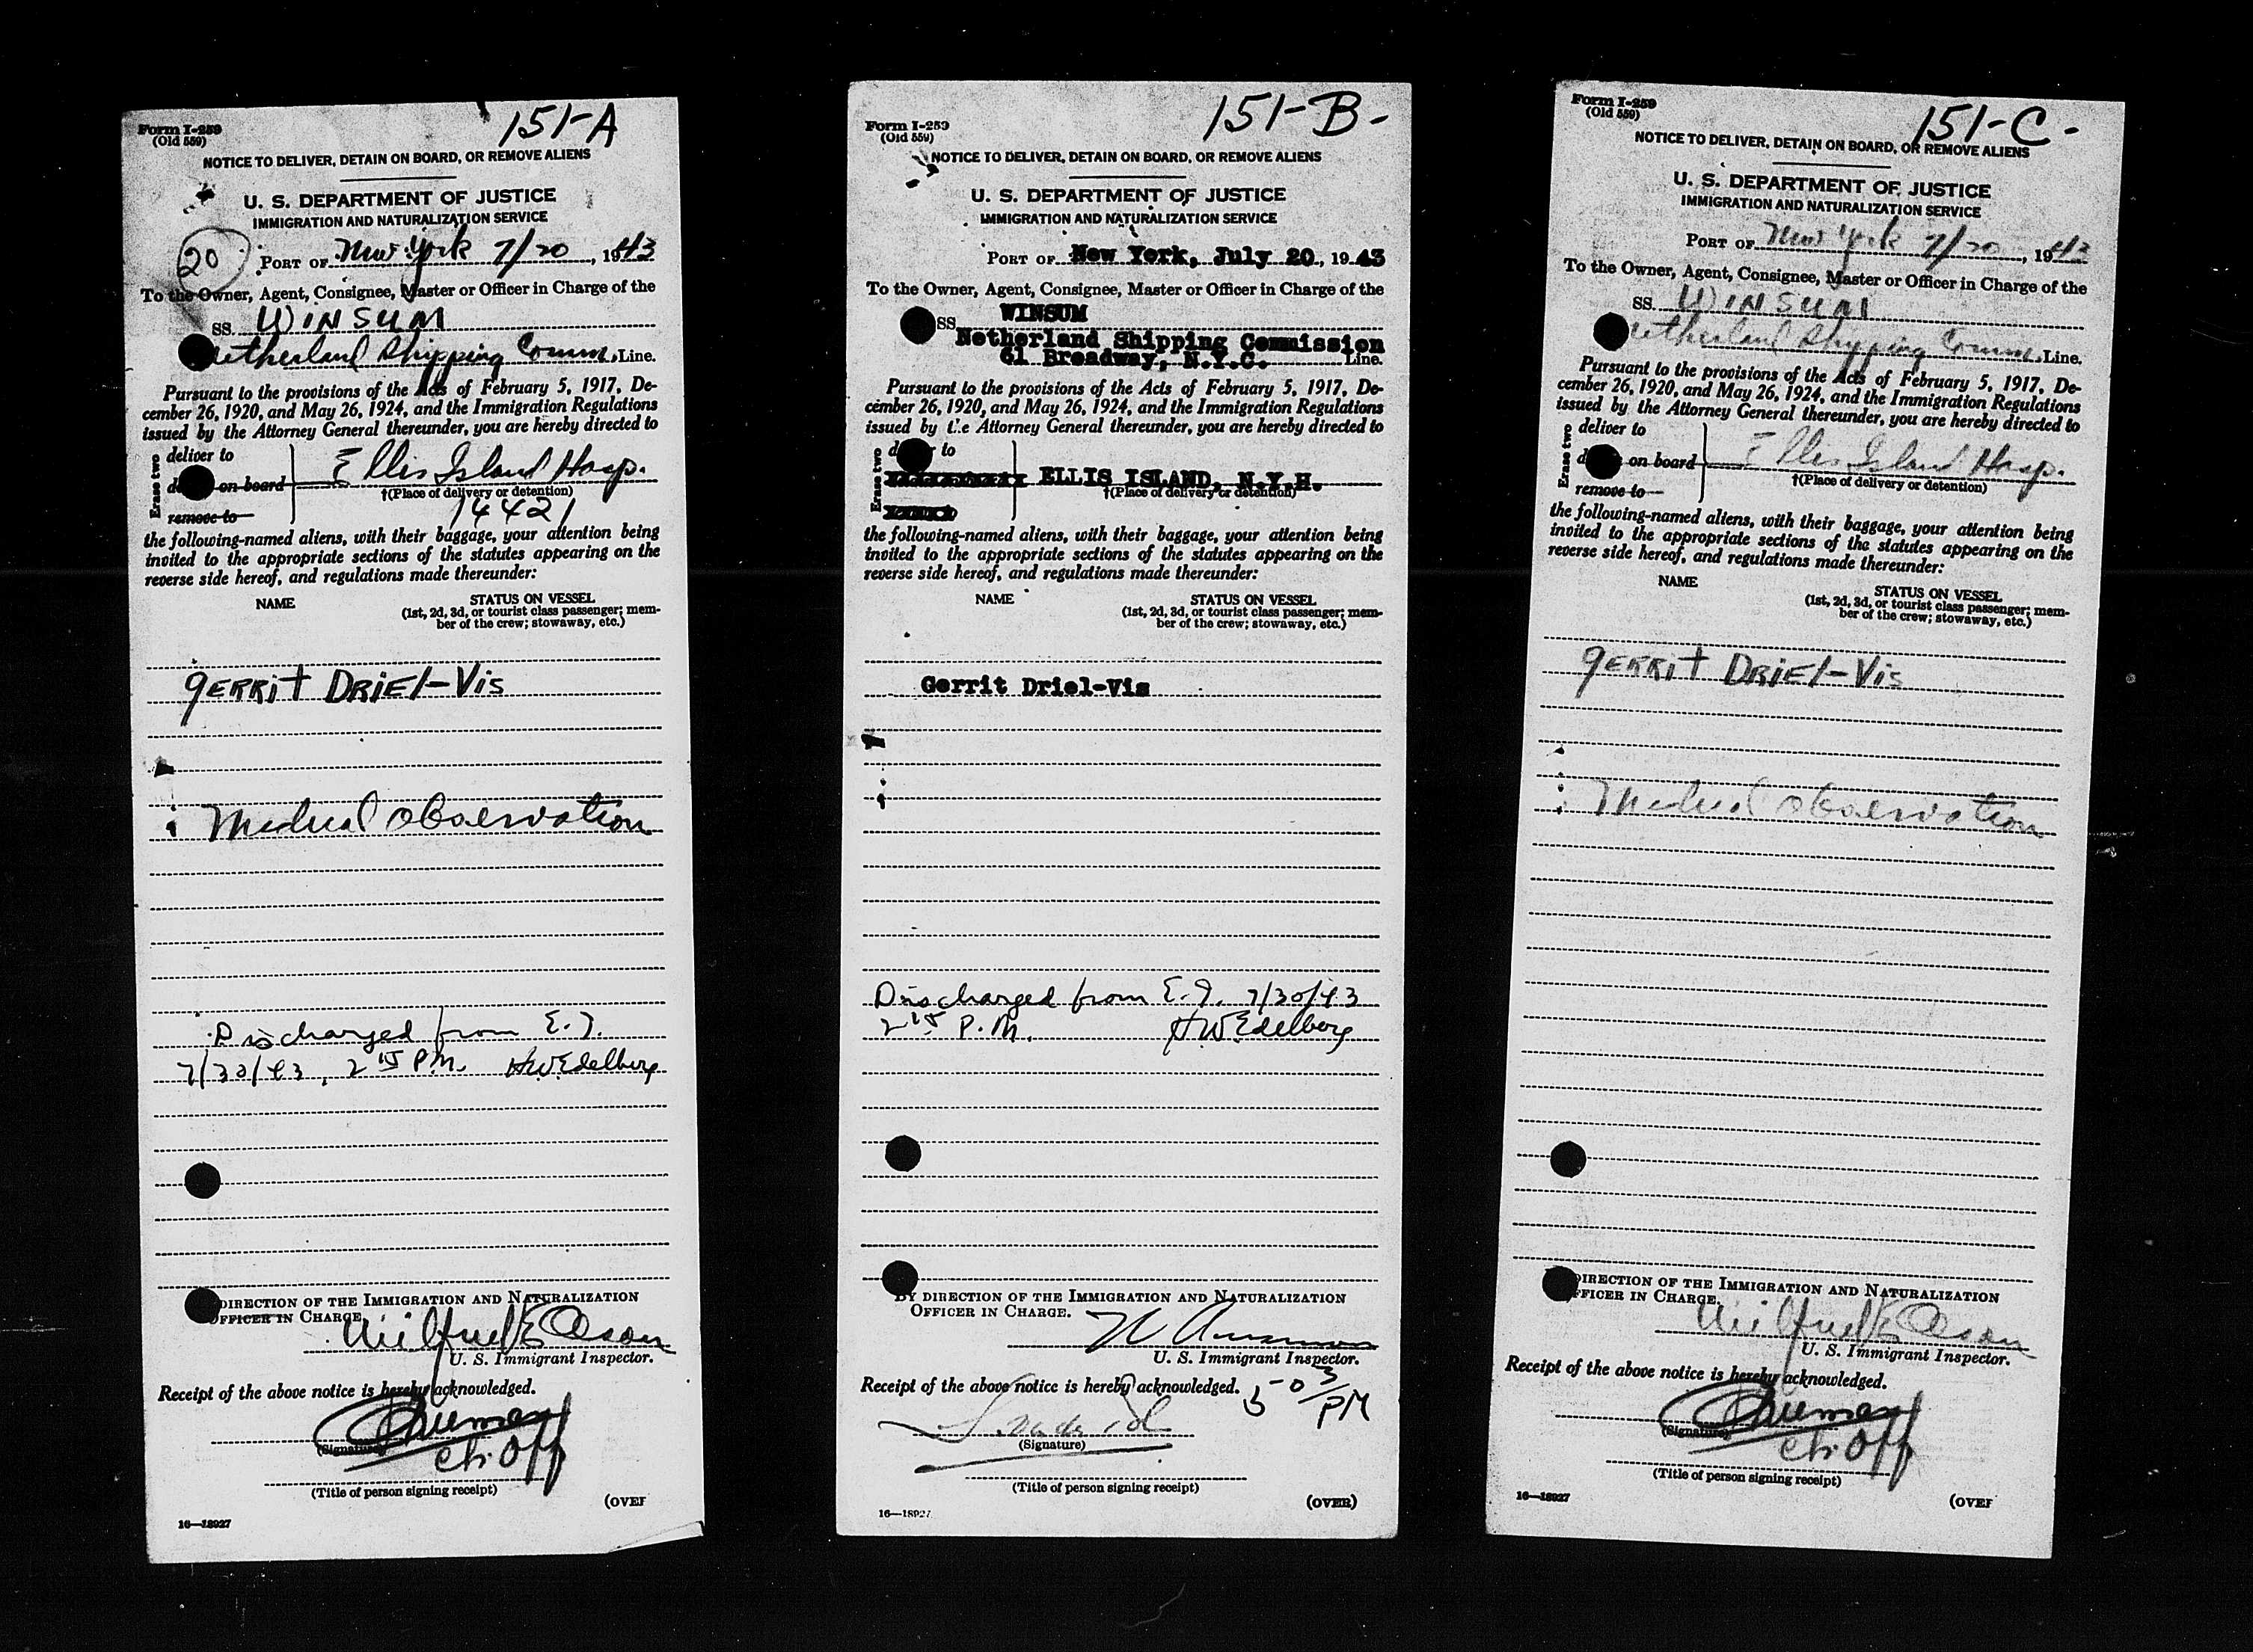 151-A
Form I-259
(Old 559)
NOTICE TO DELIVER, DETAIN ON BOARD, OR REMOVE ALIENS
U. S. DEPARTMENT OF JUSTICE
IMMIGRATION AND NATURALIZATION SERVICE
20
PORT OF New York 7/20, 1943
To the Owner, Agent, Consignee, Master or Officer in Charge of the
SS. WINSUM
etherland Shipping Comm. Line.
Pursuant to the provisions of the Acts of February 5, 1917, De-
cember 26, 1920, and May 26, 1924, and the Immigration Regulations
issued by the Attorney General thereunder, you are hereby directed to
Erase two
deliver to
d on board
remove to
Ellis Island Hosp.
†(Place of delivery or detention)
14421
the following-named aliens, with their baggage, your attention being
invited to the appropriate sections of the statutes appearing on the
reverse side hereof, and regulations made thereunder:
NAME
STATUS ON VESSEL
(1st, 2d, 3d, or tourist class passenger; mem-
ber of the crew; stowaway, etc.)
GERRIT DRIEL-VIS
Medical observation
Discharged from E.I.
7/30/43, 2 15 P.M. HWEdelberg
DIRECTION OF THE IMMIGRATION AND NATURALIZATION
OFFICER IN CHARGE.
Wilfred E Olson
U. S. Immigrant Inspector.
Receipt of the above notice is hereby acknowledged.
(Signature)
Ch. Off
(Title of person signing receipt)
(OVER
16—18927
151-B-
Form I-259
(Old 559)
NOTICE TO DELIVER, DETAIN ON BOARD, OR REMOVE ALIENS
U. S. DEPARTMENT OF JUSTICE
IMMIGRATION AND NATURALIZATION SERVICE
PORT OF New York, July 20, 1943
To the Owner, Agent, Consignee, Master or Officer in Charge of the
SS WINSUM
Netherland Shipping Commission
61 Broadway, N.Y.C. Line.
Pursuant to the provisions of the Acts of February 5, 1917, De-
cember 26, 1920, and May 26, 1924, and the Immigration Regulations
issued by the Attorney General thereunder, you are hereby directed to
Erase two
d to
ELLIS ISLAND, N.Y.H.
†(Place of delivery or detention)
the following-named aliens, with their baggage, your attention being
invited to the appropriate sections of the statutes appearing on the
reverse side hereof, and regulations made thereunder:
NAME
STATUS ON VESSEL
(1st, 2d, 3d, or tourist class passenger; mem-
ber of the crew; stowaway, etc.)
Gerrit Driel-Vis
Discharged from E.I. 7/30/43
2 15 P.M. HWEdelberg
BY DIRECTION OF THE IMMIGRATION AND NATURALIZATION
OFFICER IN CHARGE.
U. S. Immigrant Inspector.
Receipt of the above notice is hereby acknowledged.
5-03 PM
(Signature)
(Title of person signing receipt)
(OVER)
16—18927
151-C-
Form I-259
(Old 559)
NOTICE TO DELIVER, DETAIN ON BOARD, OR REMOVE ALIENS
U. S. DEPARTMENT OF JUSTICE
IMMIGRATION AND NATURALIZATION SERVICE
PORT OF New York 7/20, 1943
To the Owner, Agent, Consignee, Master or Officer in Charge of the
SS. WINSUM
etherland Shipping Comm. Line.
Pursuant to the provisions of the Acts of February 5, 1917, De-
cember 26, 1920, and May 26, 1924, and the Immigration Regulations
issued by the Attorney General thereunder, you are hereby directed to
Erase two
deliver to
d on board
remove to
Ellis Island Hosp.
†(Place of delivery or detention)
the following-named aliens, with their baggage, your attention being
invited to the appropriate sections of the statutes appearing on the
reverse side hereof, and regulations made thereunder:
NAME
STATUS ON VESSEL
(1st, 2d, 3d, or tourist class passenger; mem-
ber of the crew; stowaway, etc.)
GERRIT DRIEL-VIS
Medical observation
DIRECTION OF THE IMMIGRATION AND NATURALIZATION
FFICER IN CHARGE.
Wilfred E Olson
U. S. Immigrant Inspector.
Receipt of the above notice is hereby acknowledged.
(Signature)
Ch. Off
(Title of person signing receipt)
(OVER
16—18927